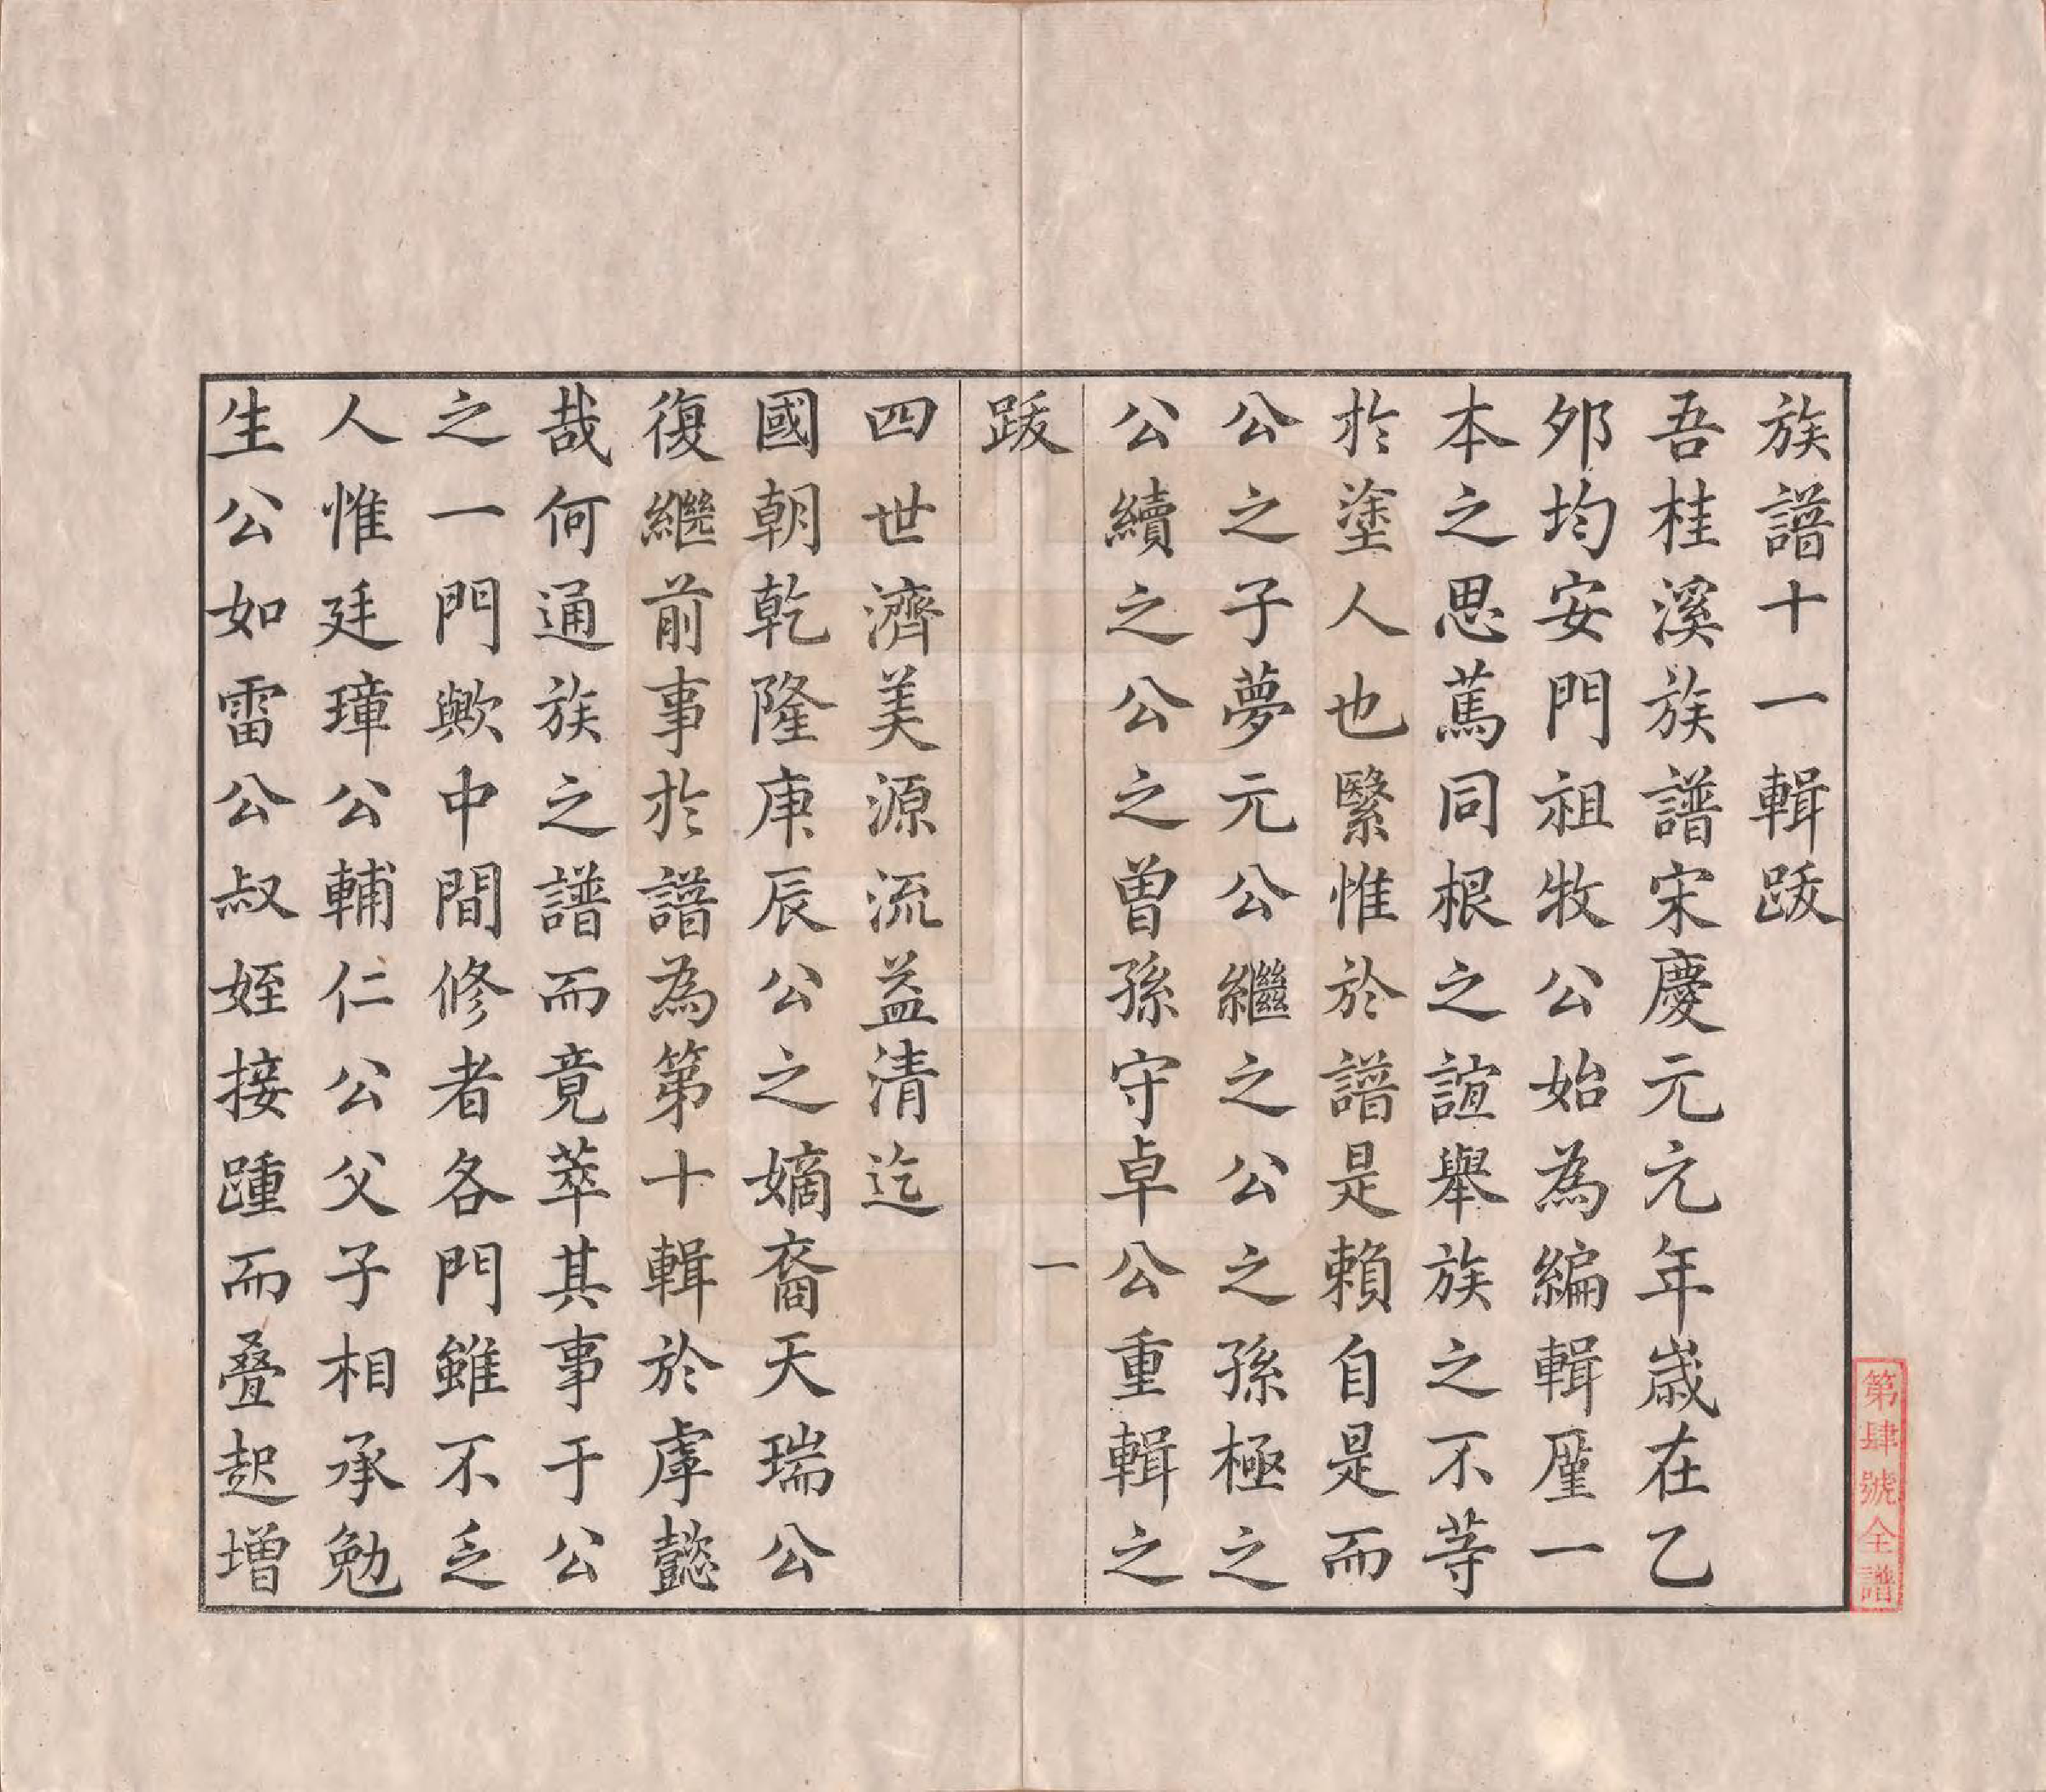 族譜十一輯跋
吾桂溪族譜宋慶元元年歲在乙
夘均安門祖牧公始為編輯厪一
本之思篤同根之誼舉族之不等
扵塗人也緊惟於譜是賴自是而
公之子夢元公繼之公之孫極之
公續之公之曽孫守卓公重輯之
跋
一
四世濟美源流益清迄
國朝乾隆庚辰公之嫡裔天瑞公
復繼前事扵譜為第十輯於虖懿
哉何通族之譜而竟萃其事于公
之一門歟中間修者各門雖不乏
人惟廷璋公輔仁公父子相承勉
生公如雷公叔姪接踵而叠起增
第肆號全譜